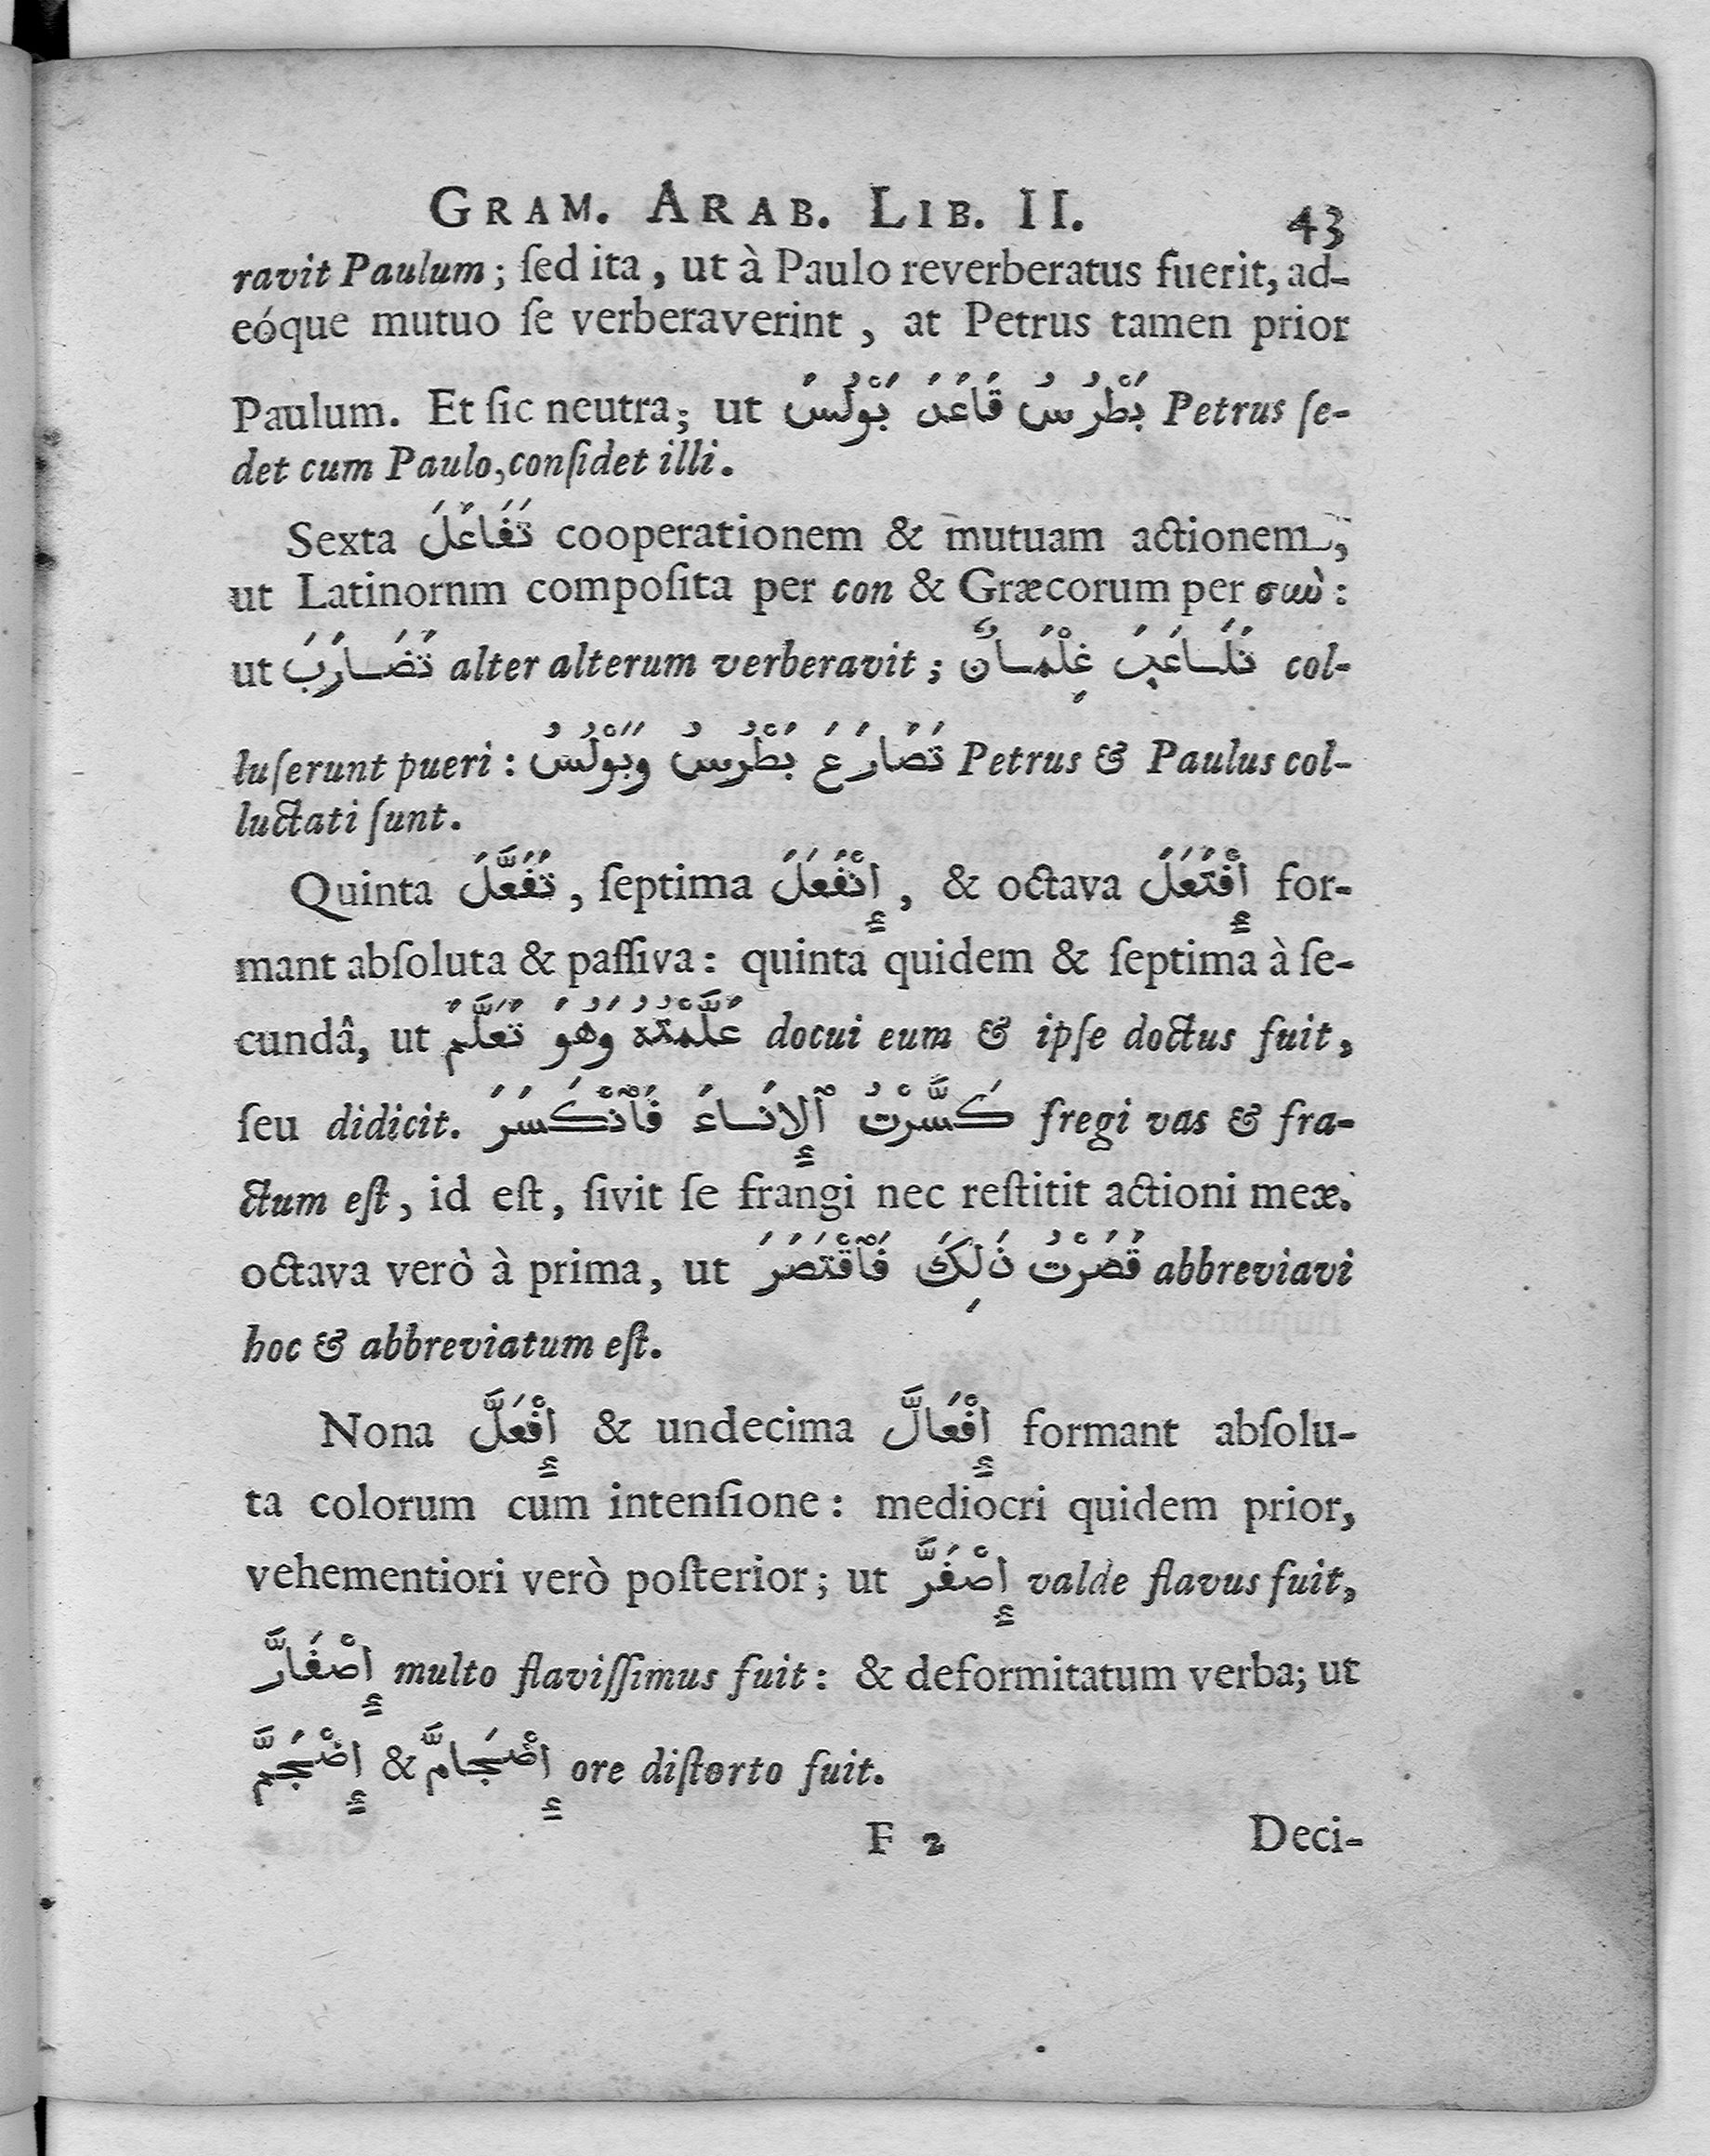 GRAM. ARAB. LIB. II. 43
ravit Paulum; ſed ita, ut à Paulo reverberatus fuerit, ad-
eóque mutuo ſe verberaverint, at Petrus tamen prior
Paulum. Et ſic neutra; ut بَطْرُسُ قَاعَدَ بَوْلُسَ Petrus ſe-
det cum Paulo, conſidet illi.
Sexta تَفَاعَلَ cooperationem & mutuam actionem,
ut Latinornm compoſita per con & Græcorum per σιωὺ:
ut تَضَارَبَ alter alterum verberavit; تَلَاعَبَ غِلْمَانٌ col-
luſerunt pueri: تَصَارَعَ بَطْرُسُ وَبَوْلُسُ Petrus & Paulus col-
luctati ſunt.
Quinta تَفَعَّلَ, ſeptima إِنْفَعَلَ, & octava إِفْتَعَلَ for-
mant abſoluta & paſſiva: quinta quidem & ſeptima à ſe-
cundâ, ut عَلَّمْتُهُ وَهُوَ تَعَلَّمَ docui eum & ipſe doctus fuit,
ſeu didicit. كَسَّرْتُ ٱلْإِنَاءَ فَٱنْكَسَرَ fregi vas & fra-
ctum eſt, id eſt, ſivit ſe frangi nec reſtitit actioni meæ.
octava verò à prima, ut قَصَرْتُ ذَلِكَ فَٱقْتَصَرَ abbreviavi
hoc & abbreviatum eſt.
Nona إِفْعَلَّ & undecima إِفْعَالَّ formant abſolu-
ta colorum cum intenſione: mediocri quidem prior,
vehementiori verò poſterior; ut إِصْفَرَّ valde flavus fuit,
إِصْفَارَّ multo flaviſſimus fuit: & deformitatum verba; ut
إِضْجَمَّ & إِضْجَامَّ ore diſtorto fuit.
F 2 Deci-